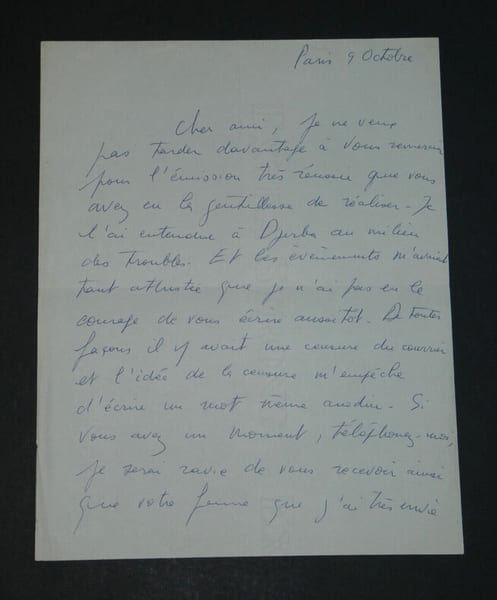 Paris 9 Octobre
Cher ami, je ne veux
pas tarder davantage à vous remercier
pour l'émission très réussie que vous
avez eu la gentillesse de réaliser - Je
l'ai entendue à Djerba au milieu
des troubles. Et les évènements m'avaient
tant attristée que je n'ai pas eu le
courage de vous écrire aussitot. De toutes
façons il y avait une censure du courrier
et l'idée de la censure m'empêche
d'écrire un mot même anodin. Si
vous avez un moment, téléphonez-moi,
je serai ravie de vous recevoir ainsi
que votre femme que j'ai très envie